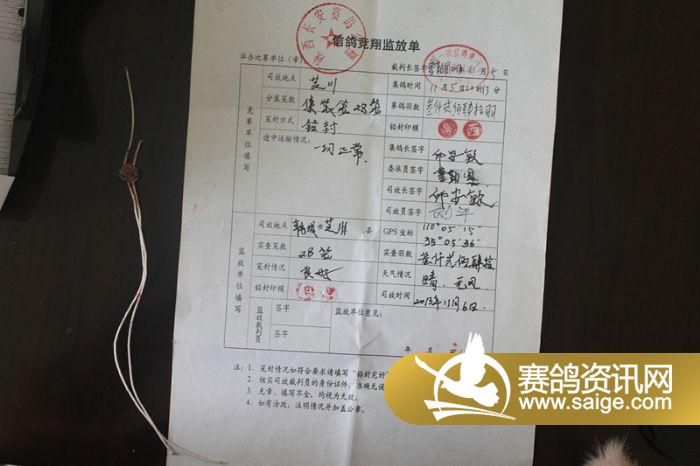 信鸽竞翔监放单
举办比赛单位（章） 裁判长签字 11月5日
竞赛单位填写
司放地点 芝川 集鸽时间 11月5日20时13分
分装笼数 集装笼28笼 赛鸽羽数 叁仟贰佰肆拾羽
笼封方式 铅封 铅封印模 陕西
途中运输情况： 一切正常. 集鸽长签字
委派员签字
司放长签字
司放员签字
监放单位填写
司放地点 韩城市芝川县 GPS坐标 110°05′15″ 35°05′36″
实查笼数 28笼 实查羽数 叁仟贰佰肆拾
笼封情况 良好 天气情况 晴，无风
铅封印模 司放时间 2013年11月6日.
监放裁判员 签字 监放单位意见：
签字
年 月
注：1、笼封情况如符合要求请填写“铅封完好
2、核实司放裁判员的身份证件，准确无误
3、无章、填写不全，均视为无效。
4、如有涂改，注明情况并加盖公章。
赛鸽资讯网
www.saige.com